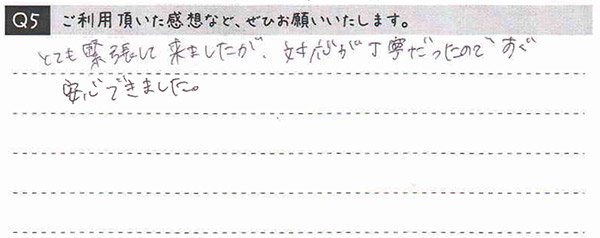 Q5 ご利用頂いた感想など、ぜひお願いいたします。
とても緊張して来ましたが、対応が丁寧だったのですぐ
安心できました。